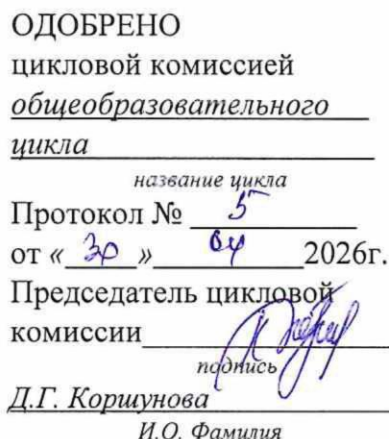 ОДОБРЕНО
цикловой комиссией
общеобразовательного
цикла
название цикла
Протокол № 5
от «30» 2026г.
Председатель цикловой
комиссии
подпись
Д.Г. Коршунова
И.О. Фамилия